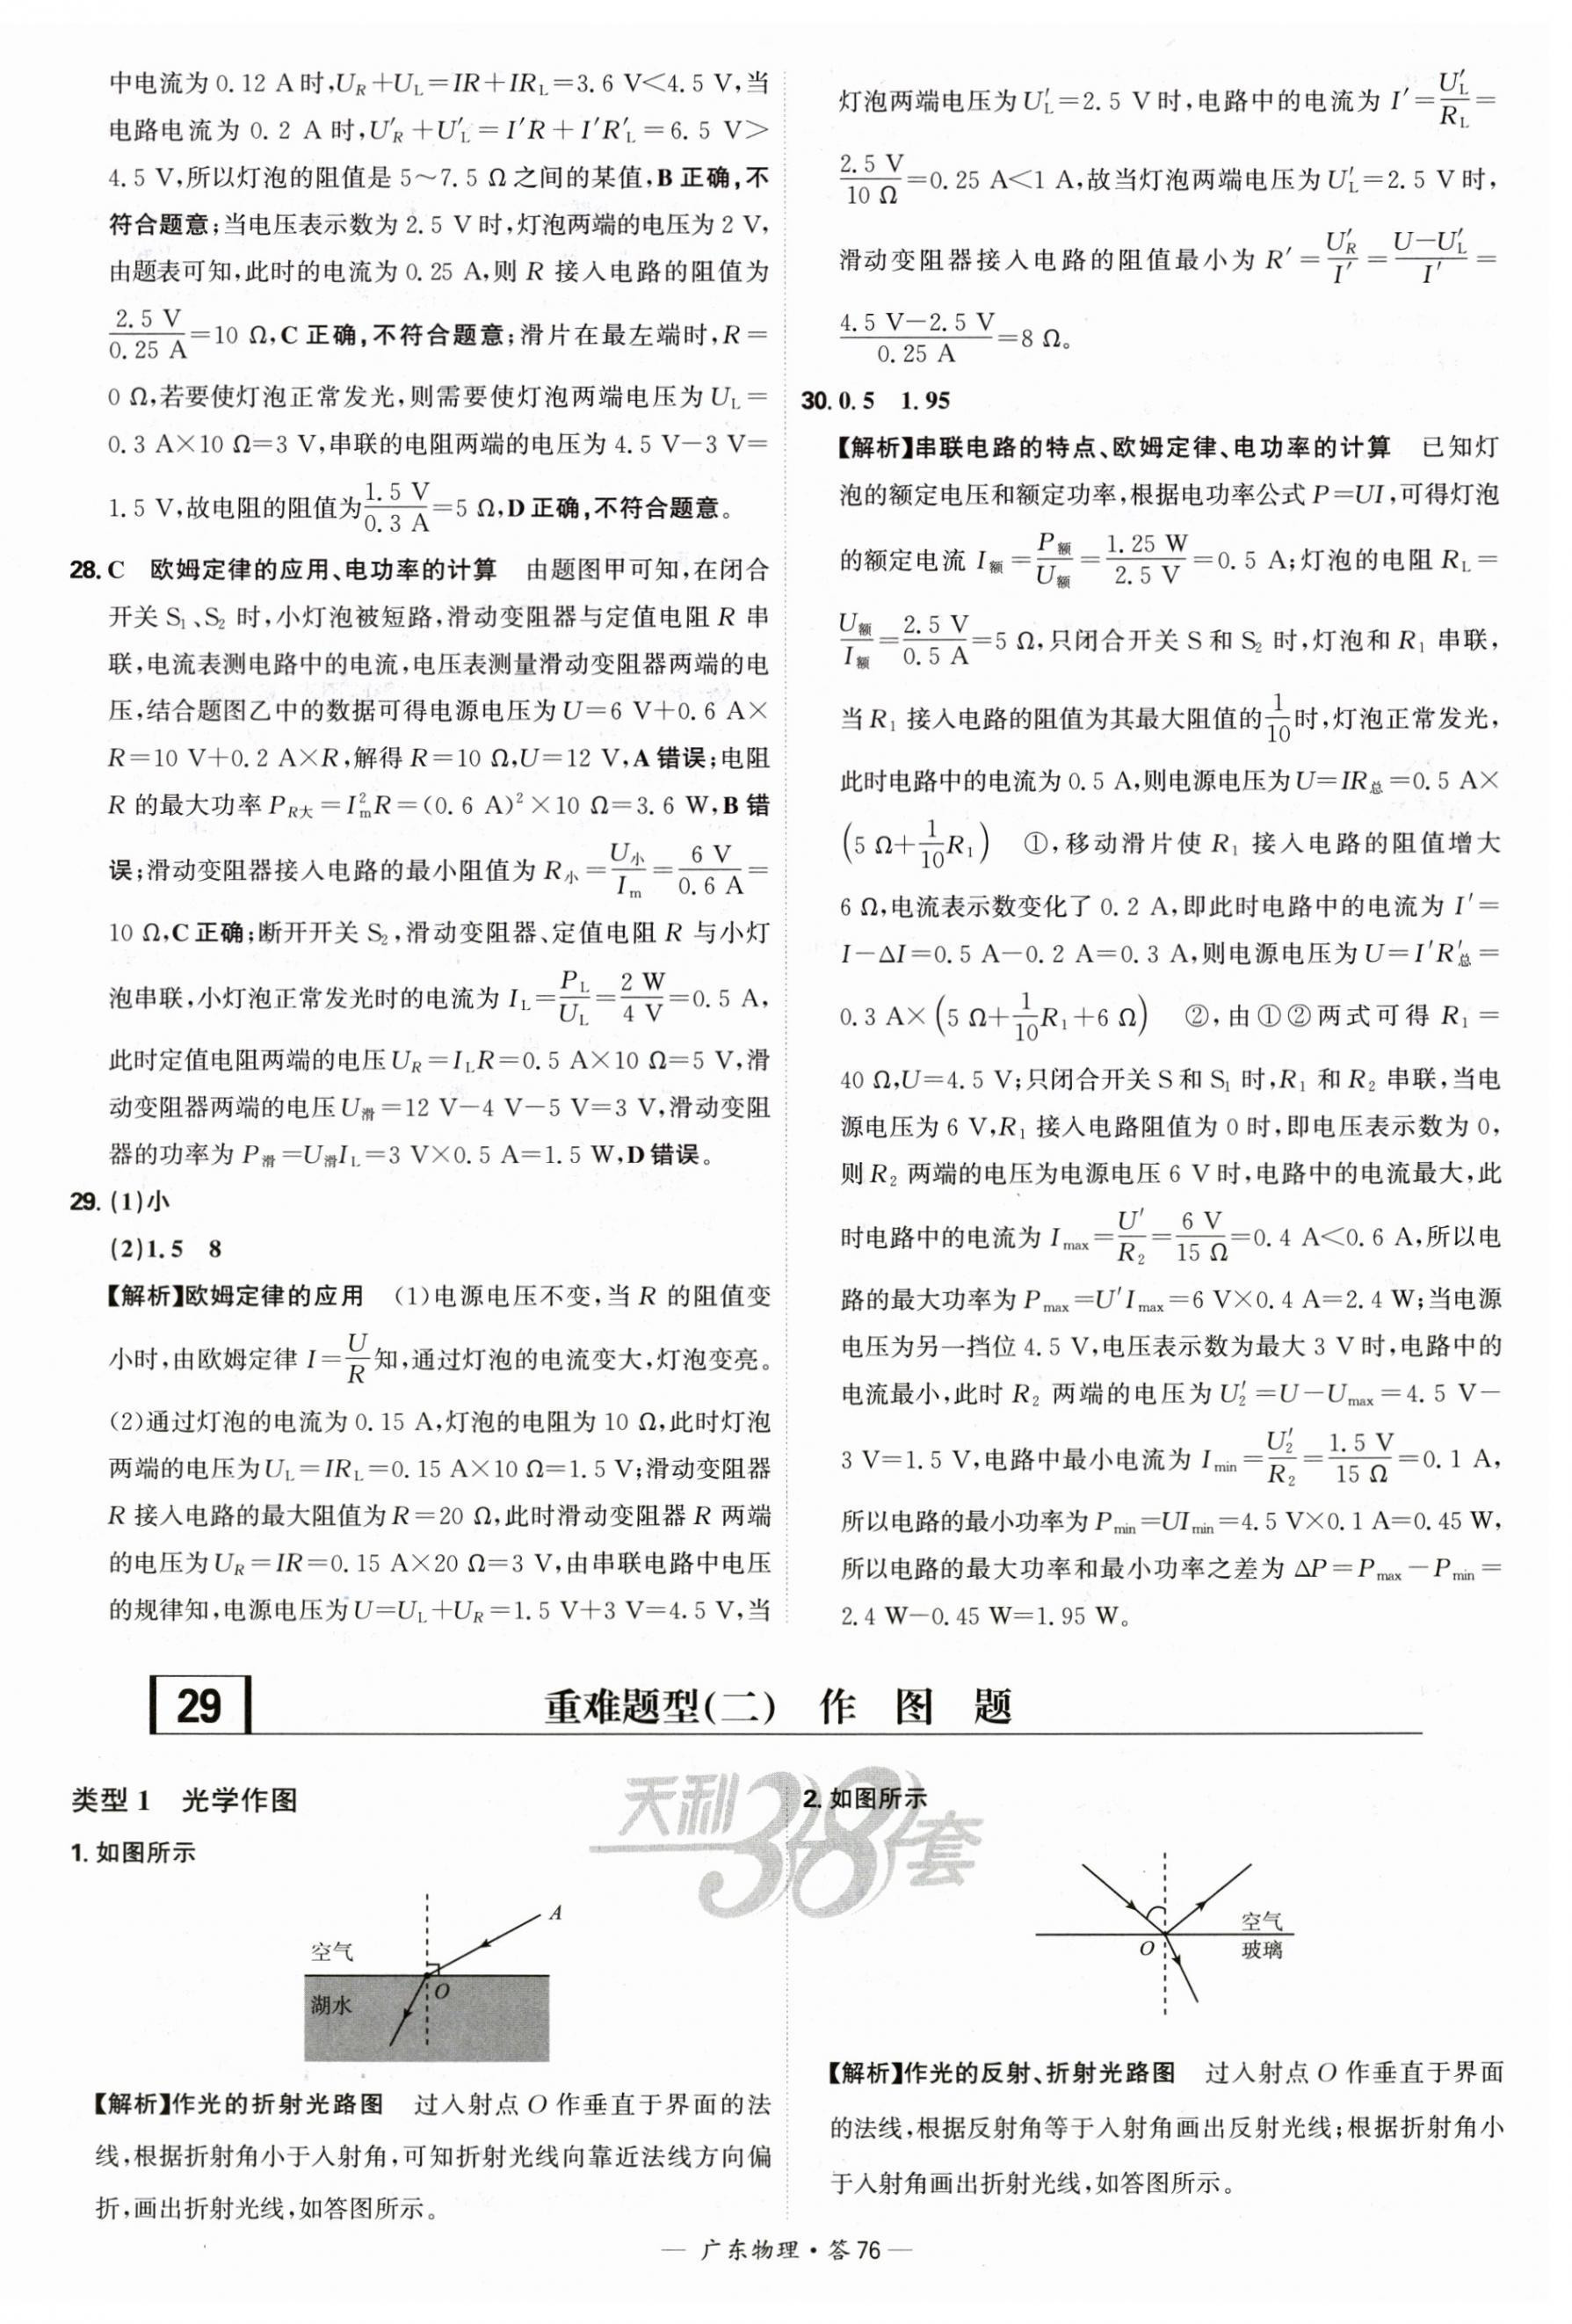 中电流为 0.12 A 时,U_R+U_L=IR+IR_L=3.6 V<4.5 V,当
电路电流为 0.2 A 时,U'_R+U'_L=I'R+I'R'_L=6.5 V>
4.5 V,所以灯泡的阻值是 5~7.5 Ω 之间的某值,B 正确,不
符合题意;当电压表示数为 2.5 V 时,灯泡两端的电压为 2 V,
由题表可知,此时的电流为 0.25 A,则 R 接入电路的阻值为
2.5 V/0.25 A=10 Ω,C 正确,不符合题意;滑片在最左端时,R=
0 Ω,若要使灯泡正常发光,则需要使灯泡两端电压为 U_L=
0.3 A×10 Ω=3 V,串联的电阻两端的电压为 4.5 V-3 V=
1.5 V,故电阻的阻值为 1.5 V/0.3 A=5 Ω,D 正确,不符合题意。
28. C 欧姆定律的应用、电功率的计算 由题图甲可知,在闭合
开关 S₁、S₂ 时,小灯泡被短路,滑动变阻器与定值电阻 R 串
联,电流表测电路中的电流,电压表测量滑动变阻器两端的电
压,结合题图乙中的数据可得电源电压为 U=6 V+0.6 A×
R=10 V+0.2 A×R,解得 R=10 Ω,U=12 V,A 错误;电阻
R 的最大功率 P_R大=I_m²R=(0.6 A)²×10 Ω=3.6 W,B 错
误;滑动变阻器接入电路的最小阻值为 R_小=U_小/I_m=6 V/0.6 A=
10 Ω,C 正确;断开开关 S₂,滑动变阻器、定值电阻 R 与小灯
泡串联,小灯泡正常发光时的电流为 I_L=P_L/U_L=2 W/4 V=0.5 A,
此时定值电阻两端的电压 U_R=I_LR=0.5 A×10 Ω=5 V,滑
动变阻器两端的电压 U_滑=12 V-4 V-5 V=3 V,滑动变阻
器的功率为 P_滑=U_滑I_L=3 V×0.5 A=1.5 W,D 错误。
29. (1)小
(2)1.5 8
【解析】欧姆定律的应用 (1)电源电压不变,当 R 的阻值变
小时,由欧姆定律 I=U/R 知,通过灯泡的电流变大,灯泡变亮。
(2)通过灯泡的电流为 0.15 A,灯泡的电阻为 10 Ω,此时灯泡
两端的电压为 U_L=IR_L=0.15 A×10 Ω=1.5 V;滑动变阻器
R 接入电路的最大阻值为 R=20 Ω,此时滑动变阻器 R 两端
的电压为 U_R=IR=0.15 A×20 Ω=3 V,由串联电路中电压
的规律知,电源电压为 U=U_L+U_R=1.5 V+3 V=4.5 V,当
灯泡两端电压为 U'_L=2.5 V 时,电路中的电流为 I'=U'_L/R_L=
2.5 V/10 Ω=0.25 A<1 A,故当灯泡两端电压为 U'_L=2.5 V 时,
滑动变阻器接入电路的阻值最小为 R'=U'_R/I'=(U-U'_L)/I'=
(4.5 V-2.5 V)/0.25 A=8 Ω。
30. 0.5 1.95
【解析】串联电路的特点、欧姆定律、电功率的计算 已知灯
泡的额定电压和额定功率,根据电功率公式 P=UI,可得灯泡
的额定电流 I_额=P_额/U_额=1.25 W/2.5 V=0.5 A;灯泡的电阻 R_L=
U_额/I_额=2.5 V/0.5 A=5 Ω,只闭合开关 S 和 S₂ 时,灯泡和 R₁ 串联,
当 R₁ 接入电路的阻值为其最大阻值的 1/10 时,灯泡正常发光,
此时电路中的电流为 0.5 A,则电源电压为 U=IR_总=0.5 A×
(5 Ω+1/10 R₁) ①,移动滑片使 R₁ 接入电路的阻值增大
6 Ω,电流表示数变化了 0.2 A,即此时电路中的电流为 I'=
I-ΔI=0.5 A-0.2 A=0.3 A,则电源电压为 U=I'R'_总=
0.3 A×(5 Ω+1/10 R₁+6 Ω) ②,由①②两式可得 R₁=
40 Ω,U=4.5 V;只闭合开关 S 和 S₁ 时,R₁ 和 R₂ 串联,当电
源电压为 6 V,R₁ 接入电路阻值为 0 时,即电压表示数为 0,
则 R₂ 两端的电压为电源电压 6 V 时,电路中的电流最大,此
时电路中的电流为 I_max=U'/R₂=6 V/15 Ω=0.4 A<0.6 A,所以电
路的最大功率为 P_max=U'I_max=6 V×0.4 A=2.4 W;当电源
电压为另一挡位 4.5 V,电压表示数为最大 3 V 时,电路中的
电流最小,此时 R₂ 两端的电压为 U'₂=U-U_max=4.5 V-
3 V=1.5 V,电路中最小电流为 I_min=U'₂/R₂=1.5 V/15 Ω=0.1 A,
所以电路的最小功率为 P_min=UI_min=4.5 V×0.1 A=0.45 W,
所以电路的最大功率和最小功率之差为 ΔP=P_max-P_min=
2.4 W-0.45 W=1.95 W。
29 重难题型(二) 作 图 题
类型 1 光学作图
1. 如图所示
A
空气
O
湖水
【解析】作光的折射光路图 过入射点 O 作垂直于界面的法
线,根据折射角小于入射角,可知折射光线向靠近法线方向偏
折,画出折射光线,如答图所示。
天利38套
2. 如图所示
空气
O
玻璃
【解析】作光的反射、折射光路图 过入射点 O 作垂直于界面
的法线,根据反射角等于入射角画出反射光线;根据折射角小
于入射角画出折射光线,如答图所示。
— 广东物理·答 76 —